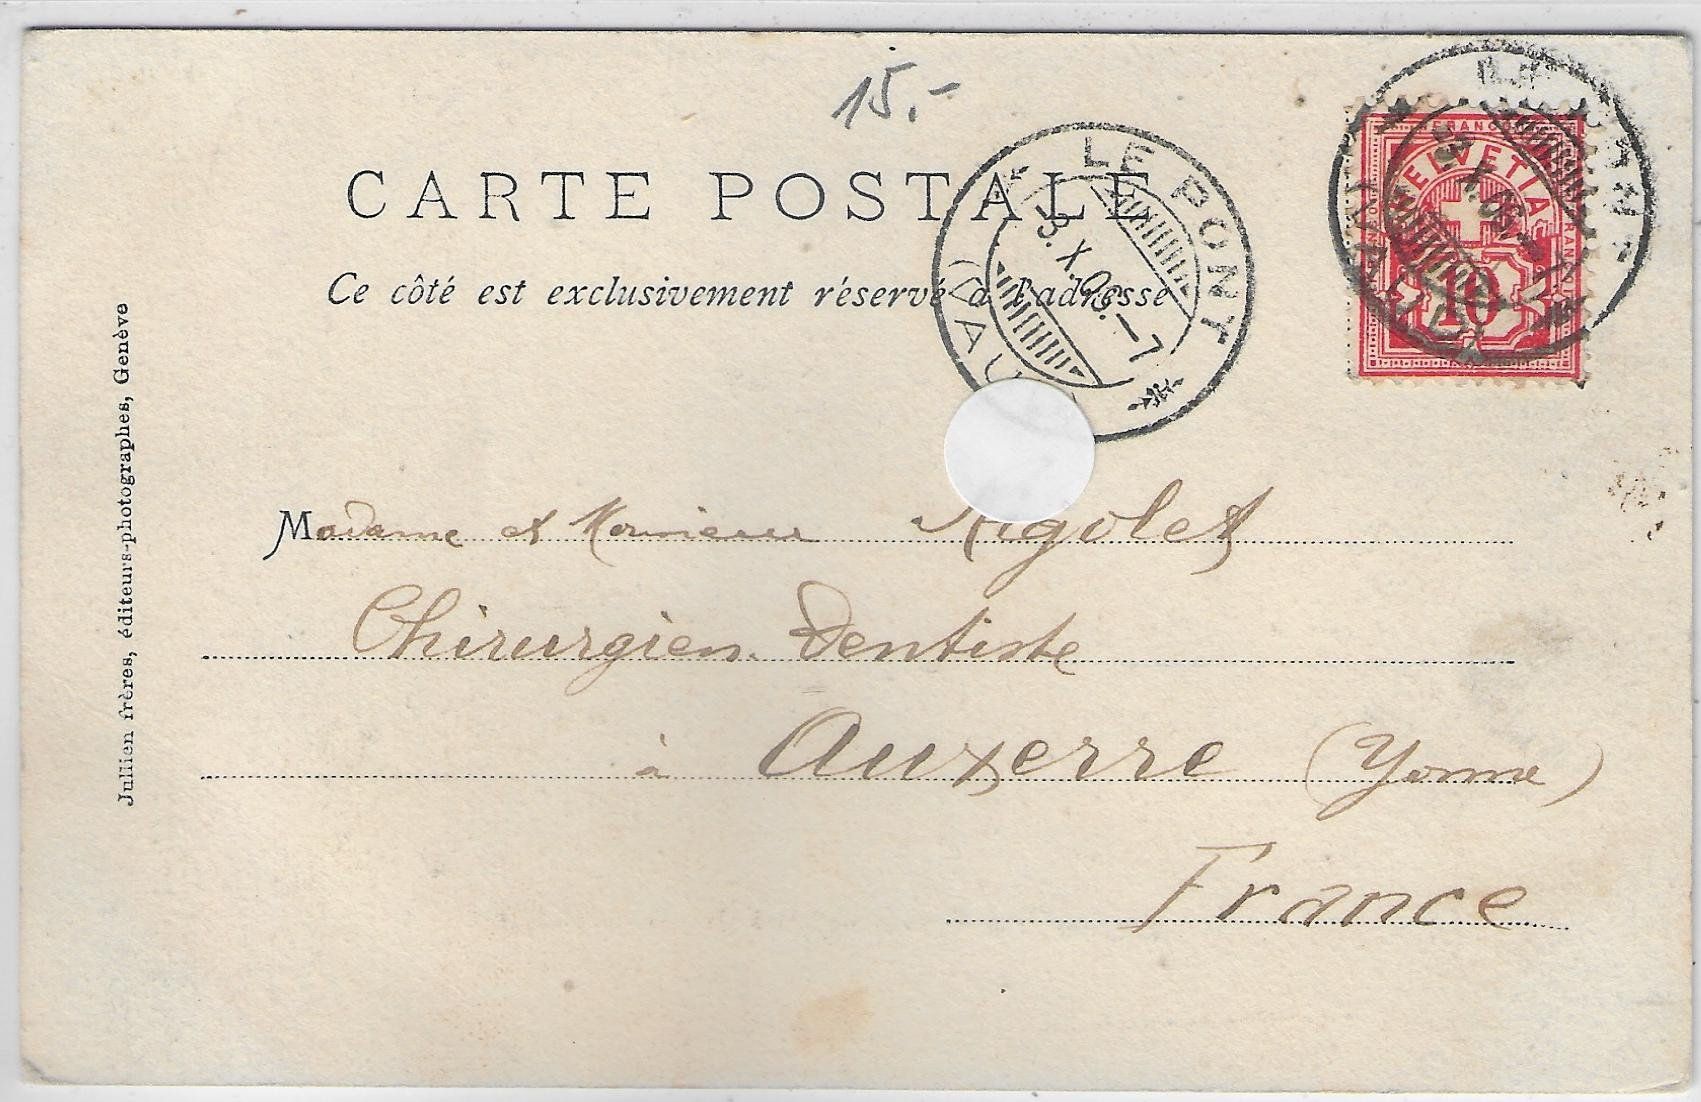 15.-
CARTE POSTALE
Ce côté est exclusivement réservé à l'adresse
LE PONT
(VAUD)
3.X.06.-7
FRANCO
HELVETIA
10
Madame et Monsieur Rigolet
Chirurgien-Dentiste
à Auxerre (Yonne)
France
Jullien frères, éditeurs-photographes, Genève